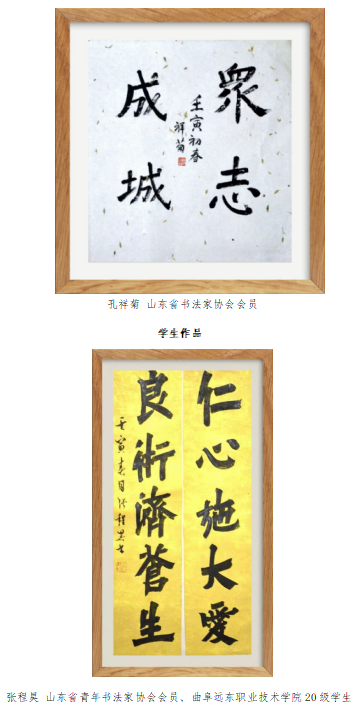 衆志
成城
壬寅初春
祥菊
孔祥菊 山东省书法家协会会员
学生作品
仁心施大愛
良術濟蒼生
壬寅春月张程昊书
张程昊 山东省青年书法家协会会员、曲阜远东职业技术学院20级学生